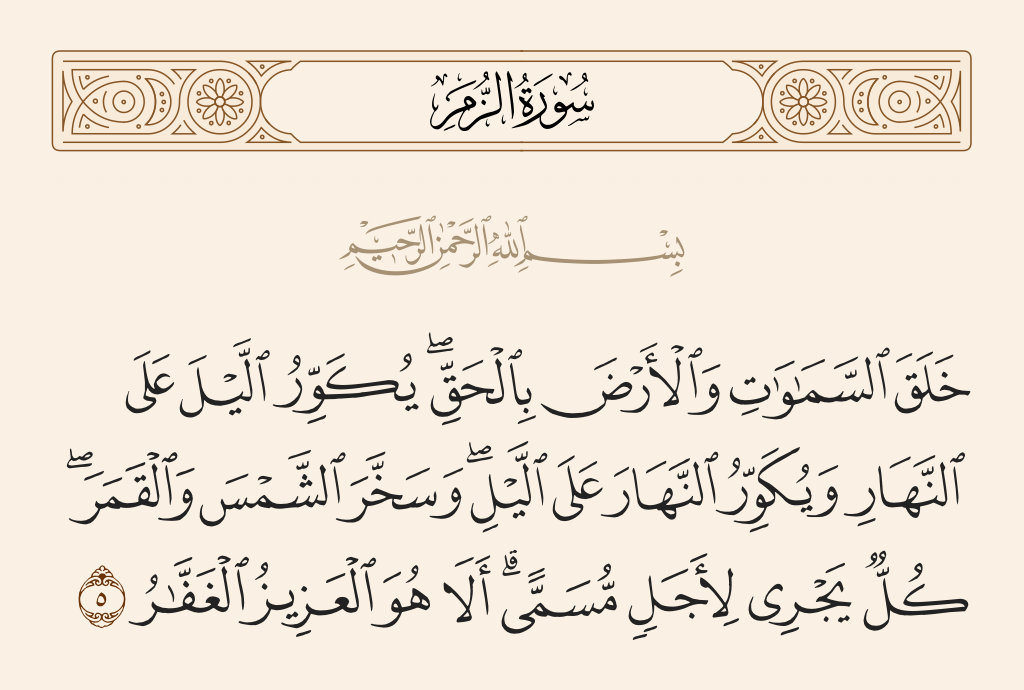 سُورَةُ الزُّمَرِ
بِسْمِ ٱللَّهِ ٱلرَّحْمَٰنِ ٱلرَّحِيمِ
خَلَقَ ٱلسَّمَٰوَٰتِ وَٱلْأَرْضَ بِٱلْحَقِّ ۖ يُكَوِّرُ ٱلَّيْلَ عَلَى
ٱلنَّهَارِ وَيُكَوِّرُ ٱلنَّهَارَ عَلَى ٱلَّيْلِ ۖ وَسَخَّرَ ٱلشَّمْسَ وَٱلْقَمَرَ ۖ
كُلٌّ يَجْرِى لِأَجَلٍ مُّسَمًّى ۗ أَلَا هُوَ ٱلْعَزِيزُ ٱلْغَفَّٰرُ ٥